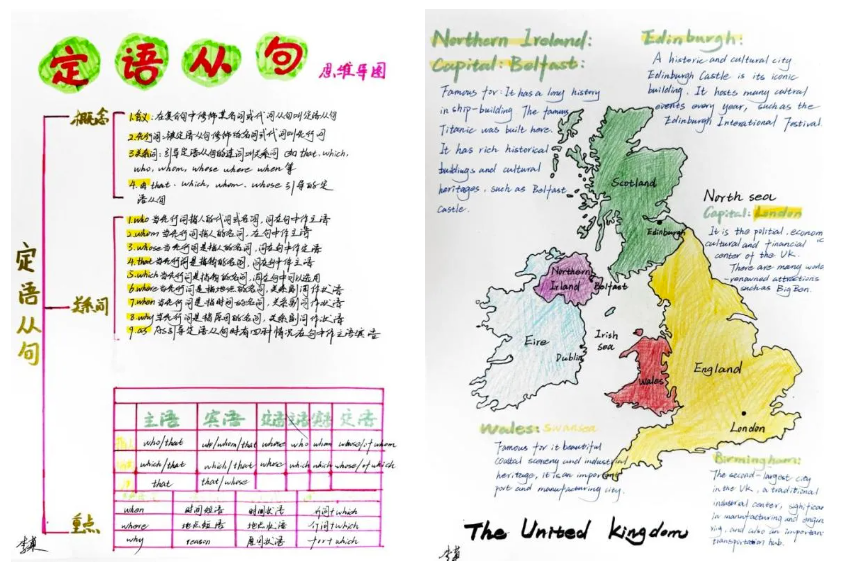 定语从句
思维导图
概念
1.含义:在复合句中修饰某名词或代词从句叫定语从句
2.先行词:被定语从句修饰的名词或代词叫先行词
3.关系词:引导定语从句的连词叫关系词 如that, which,
who, whom, whose where when 等
4.由that, which, whom, whose 引导的定
语从句
定语从句
关系词
1.who 当先行词指人的代词或名词,词在句中作主语
2.whom 当先行词指人的名词,在句中作宾语
3.whose 当先行词是指人的名词,词在句中作定语
4.that 当先行词是指物的名词,词在句中作主语
5.which 当先行词指物的名词,
6.where 当先行词是指地点的名词,关系副词作状语
7.when 当先行词是指时间的名词,关系副词作状语
8.why 当先行词是指原因的名词,关系副词作状语
9.as As引导定语从句时有四种情况在句中作主语宾语
主语 宾语 定语 主语 宾语 定语
who/that who/whom/that whose who whom whose/of whom
which/that which/that whose which which whose/of which
that that/whose
when 时间短语 时间状语 介词+which
where 地点短语 地点状语 介词+which
why reason 原因状语 for+which
重点
李英
Northern Ireland:
Capital: Belfast:
Famous for: It has a long history
in ship-building The famous
Titanic was built here.
It has rich historical
buildings and cultural
heritages, such as Belfast
Castle.
Edinburgh:
A historic and cultural city
Edinburgh Castle is its iconic
building. It hosts many cultral
events every year, such as the
Edinburgh International Festival.
Scotland
Edinburgh
North sea
Capital: London
It is the political, econom
ic
cultural and financial
center of the UK.
There are many world
-renowned attractions
such as Big Ben.
Northern
Irland
Belfast
Irish
sea
Eire
Dublin
Wales
England
London
Wales: Swansea
Famous for it beautiful
coastal scenery and industrial
heritage, it is an important
port and manufacturing city.
Birmingham:
The second-largest city
in the UK, a traditional
industrial center, significant
in manufacturing and engin
rig, and also an important
transportation hub.
The United Kingdom
李英